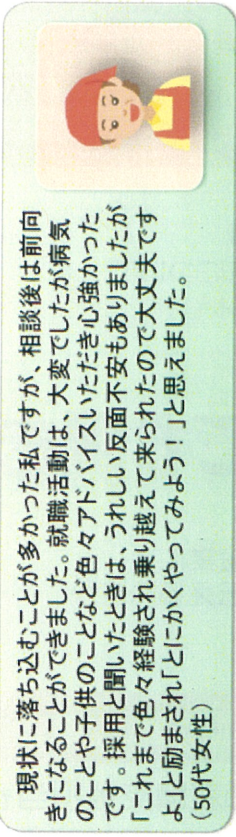 現状に落ち込むことが多かった私ですが、相談後は前向
きになることができました。就職活動は、大変でしたが病気
のことや子供のことなど色々アドバイスいただき心強かった
です。採用と聞いたときは、うれしい反面不安もありましたが
「これまで色々経験され乗り越えて来られたので大丈夫です
よ」と励まされ「とにかくやってみよう！」と思えました。
（50代女性）